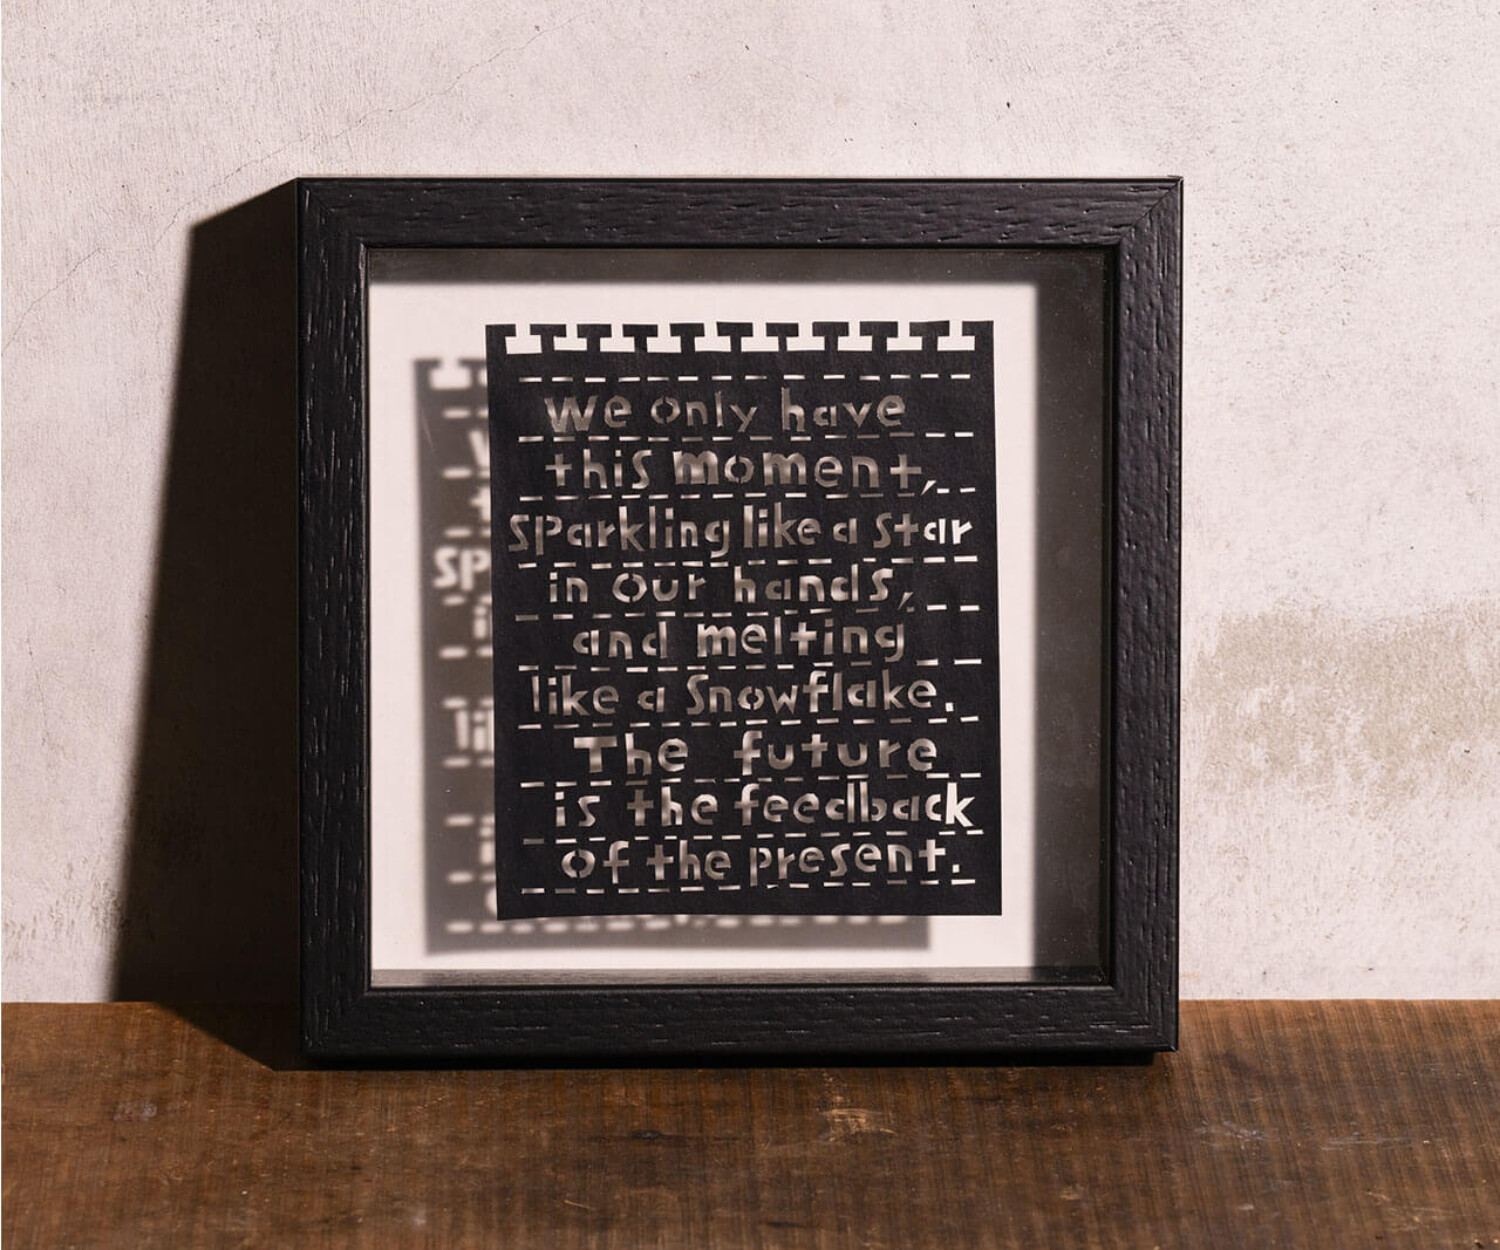 We only have
this moment,
Sparkling like a Star
in our hands,
and melting
like a Snowflake.
The future
is the feedback
of the present.